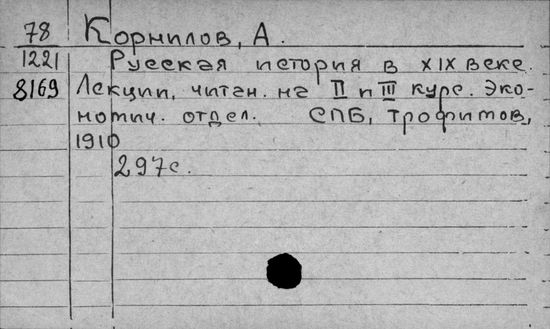 78 Корнилов, А.
1221 Русская история в XIX веке.
8169 Лекции, читан. на II и III курс. Эко-
номич. отдел. СПБ, Трофимов,
1910
297с.